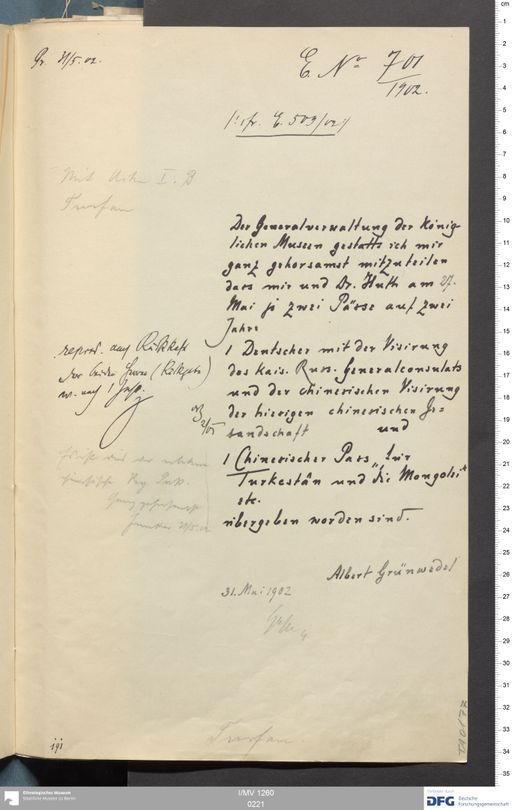 Pr. 31/5.02.
E. No 701
1902.
/: cfr. E. 503/02 :/
Mit Akte I. B
Turfan
Der Generalverwaltung der König-
lichen Museen gestatte ich mir
ganz gehorsamst mitzuteilen
dass mir und Dr. Huth am 27.
Mai je zwei Pässe auf zwei
Jahre
1 Deutscher mit der Visirung
des Kais. Russ. Generalconsulats
und der chinesischen Visirung
der hiesigen chinesischen Ge=
sandschaft und
1 Chinesischer Pass „für
Turkestân und die Mongolei"
etc.
übergeben worden sind.
Albert Grünwedel
31. Mai 1902
reprod. auf Rückkehr
der beiden Herrn
Turfan
191
TA 0177
I/MV 1260
0221
Ethnologisches Museum
Staatliche Museen zu Berlin
DFG Deutsche
Forschungsgemeinschaft